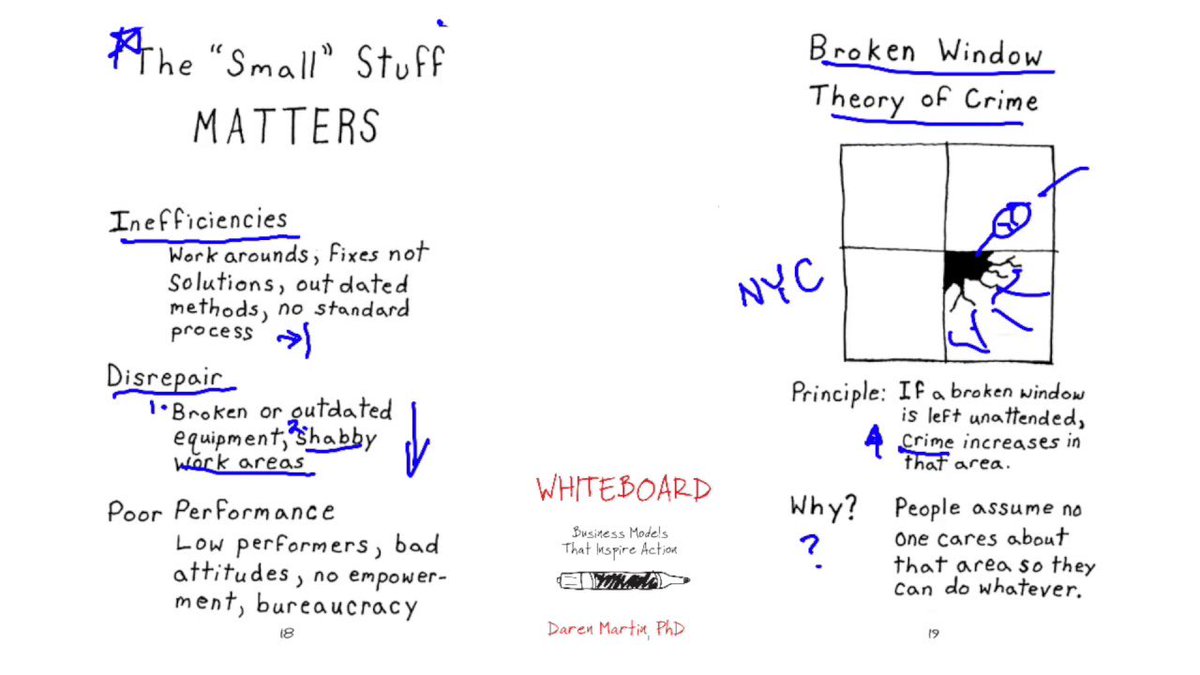 The "Small" Stuff
MATTERS
Inefficiencies
Work arounds, fixes not
solutions, out dated
methods, no standard
process
Disrepair
1. Broken or outdated
equipment, 2. shabby
work areas
Poor Performance
Low performers, bad
attitudes, no empower-
ment, bureaucracy
18
WHITEBOARD
Business Models
That Inspire Action
Daren Martin, PhD
Broken Window
Theory of Crime
NYC
Principle: If a broken window
is left unattended,
Crime increases in
that area.
Why? People assume no
? one cares about
that area so they
can do whatever.
19